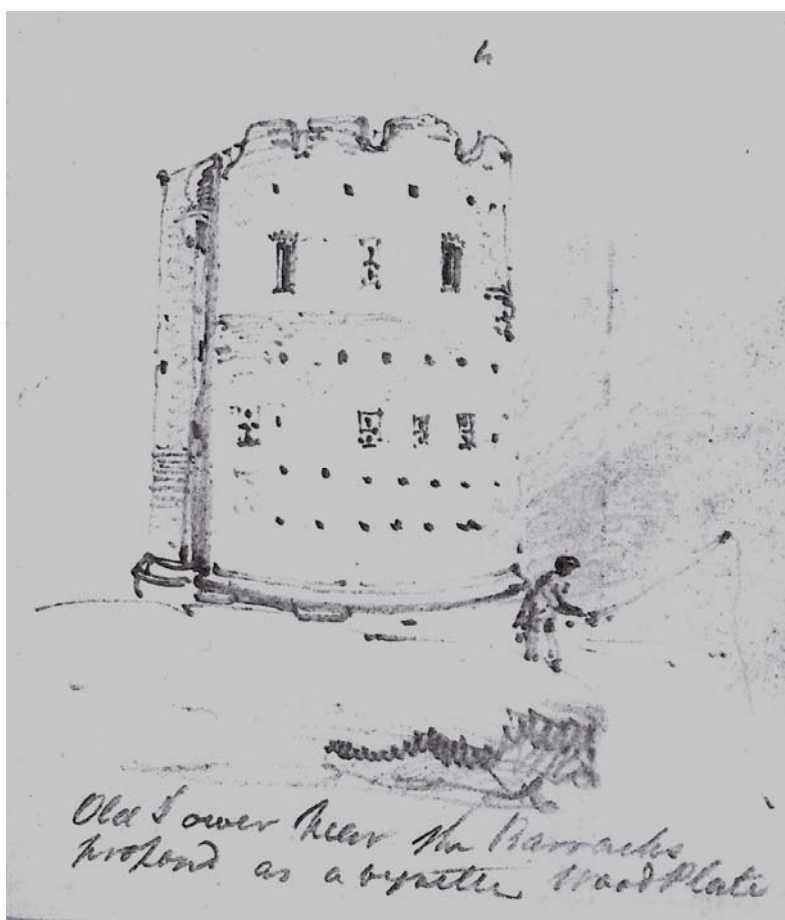 h
Old Tower Near the Barracks
proposd as a vignette Wood Plate